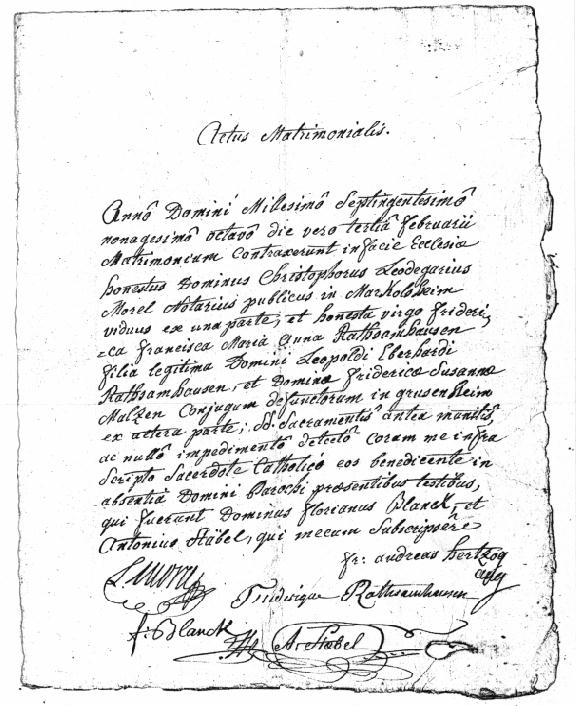 Actus Matrimonialis.
Annô Domini Milesimô Septingentesimô
nonagesimô octavô die vero tertiâ februarii
Matrimonium Contraxerunt in facie Ecclesia
honestus Dominus Christophorus Leodegarius
Morel Notarius publicus in Markolsheim
viduus ex una parte, et honesta virgo frideri,
=ca francisca Maria anna Rathsamhausen
filia legitima Domini Leopoldi Eberhardi
Rathsamhausen, et Dominæ fridericæ Susannæ
Malzen Conjugum defunctorum in grusenheim
ex altera parte, SS. Sacramentis antea munitis,
ac nullô impedimentô detectô coram me infra
Scripto Sacerdote Catholicô eos benedicente in
absentia Domini Parochi præsentibus testibus,
qui fuerunt Dominus florianus Blanck, et
Antonius Stabel, qui mecum Subscripsere
fr: andreas hertzog
Fridrique Rathsamhausen
f: Blanck
A: Stabel